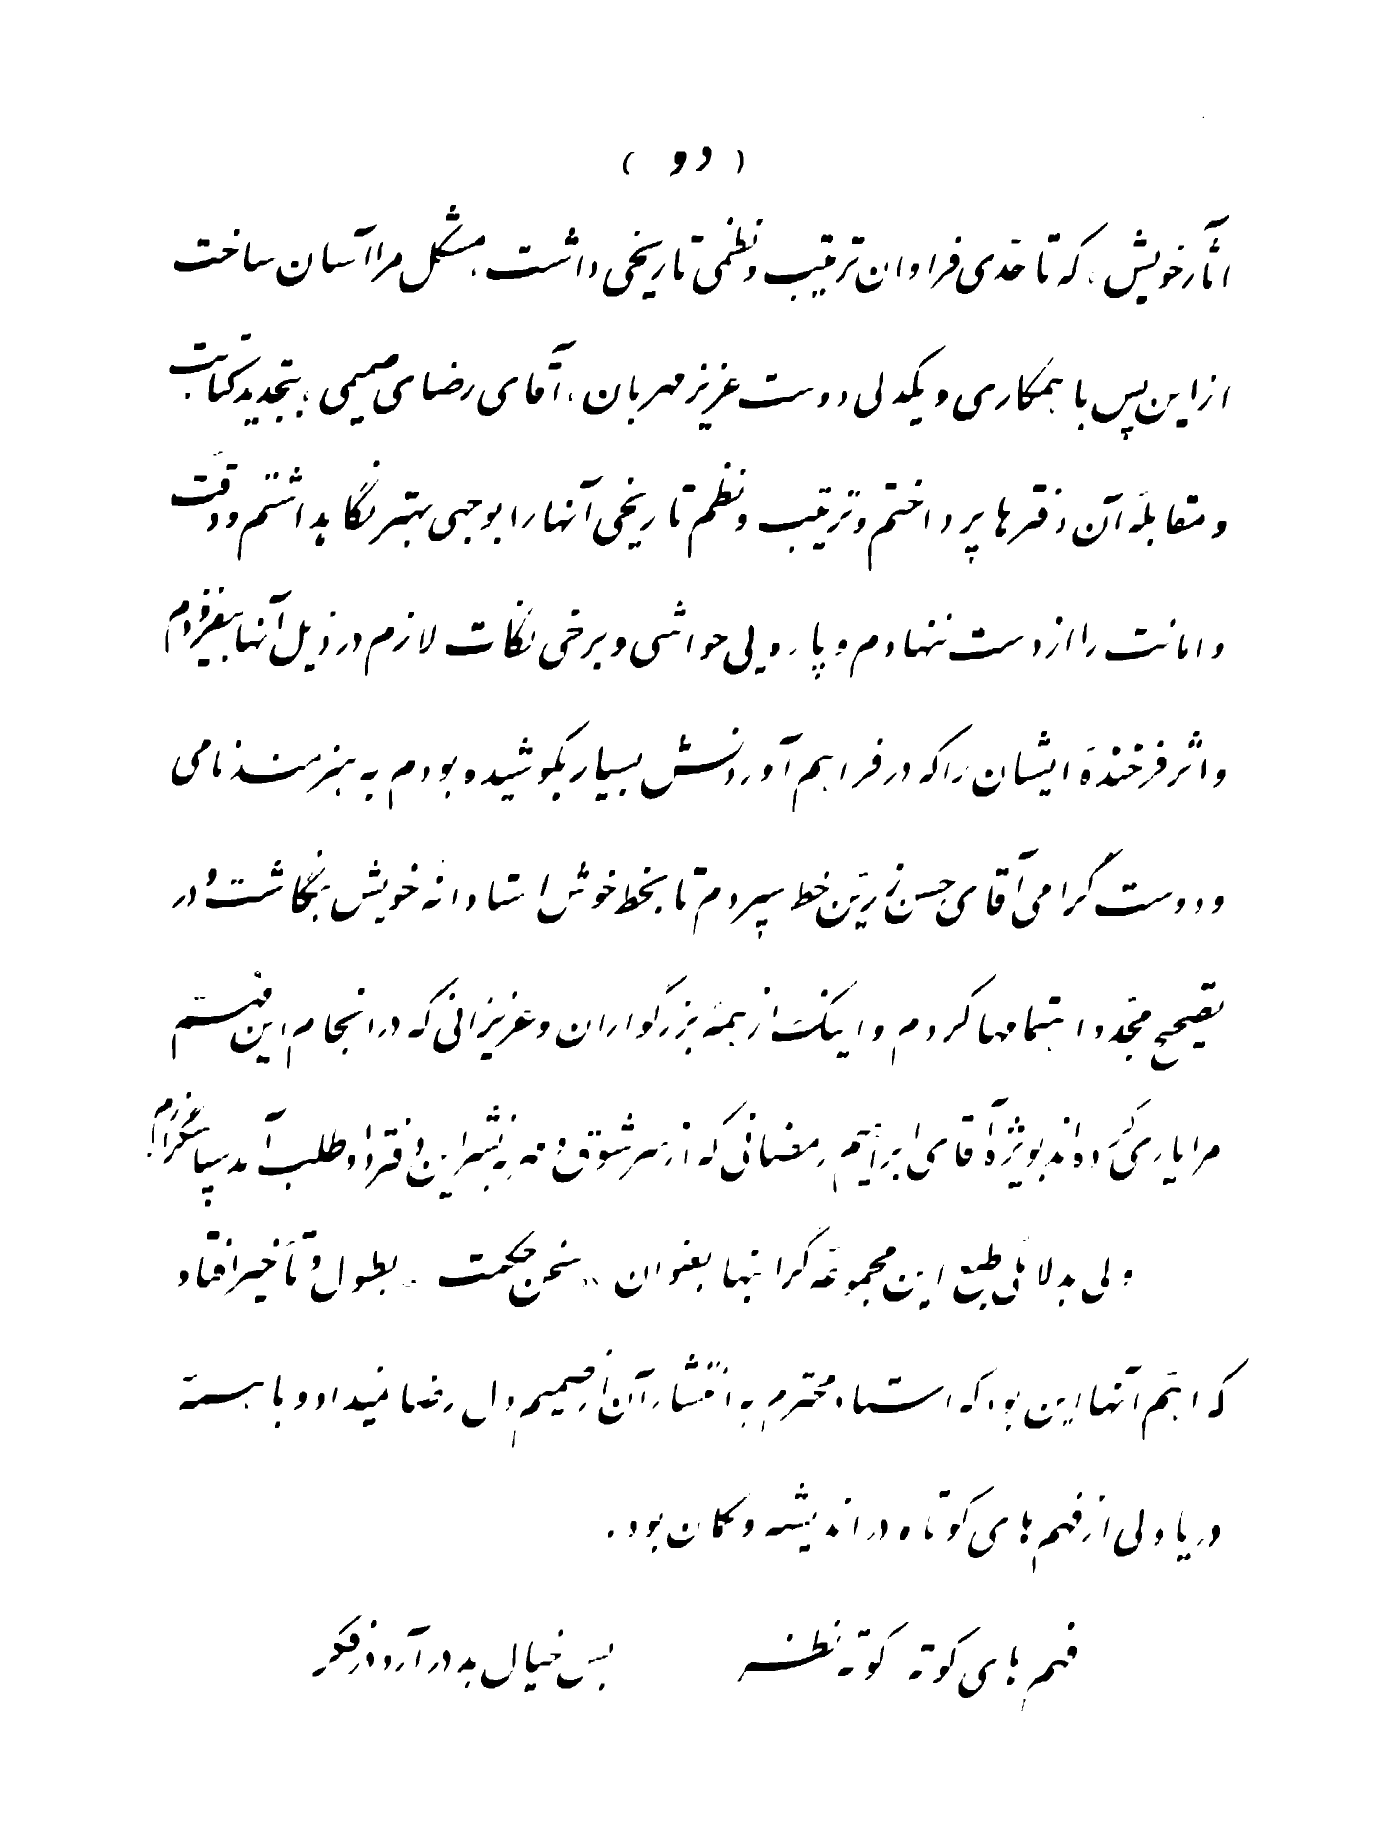 ( دو )
آثار خویش، که تا حدی فراوان ترتیب و نظمی تاریخی داشت، مشکل مرا آسان ساخت
از این پس با همکاری و یکدلی دوست عزیز مهربان، آقای رضای صمیمی، بتجدید کتابت
و مقابلهٔ آن دفترها پرداختم و ترتیب و نظم تاریخی آنها را بوجهی بهتر نگاه بداشتم و دقت
و امانت را از دست ننهادم و پاره‌یی حواشی و برخی نکات لازم در ذیل آنها بیفزودم
و اثر فرخندهٔ ایشان را که در فراهم آوردنش بسیار بکوشیده بودم به هنرمند نامی
و دوست گرامی آقای حسن زرین خط سپردم تا بخط خوش استادانهٔ خویش بنگاشت و در
تصحیح مجدد اهتمامها کردم و اینک از همهٔ بزرگواران و عزیزانی که در انجام این مهم
مرا یاری کرده‌اند بویژه آقای ابراهیم رمضانی که از سر شوق و مهر به نشر این دفتر داوطلب آمد سپاسگزارم.
ولی بدلائلی طبع این مجموعهٔ گرانبها بعنوان «سخن حکمت» بطول و تأخیر افتاد
که اهم آنها این بود که استاد محترم به انتشار آن از صمیم دل رضا نمیداد و با همه
دریا دلی از فهم‌های کوتاه در اندیشه و گمان بود.
فهم‌های کوته کوته نظر بس خیال بد در آرد در فکر